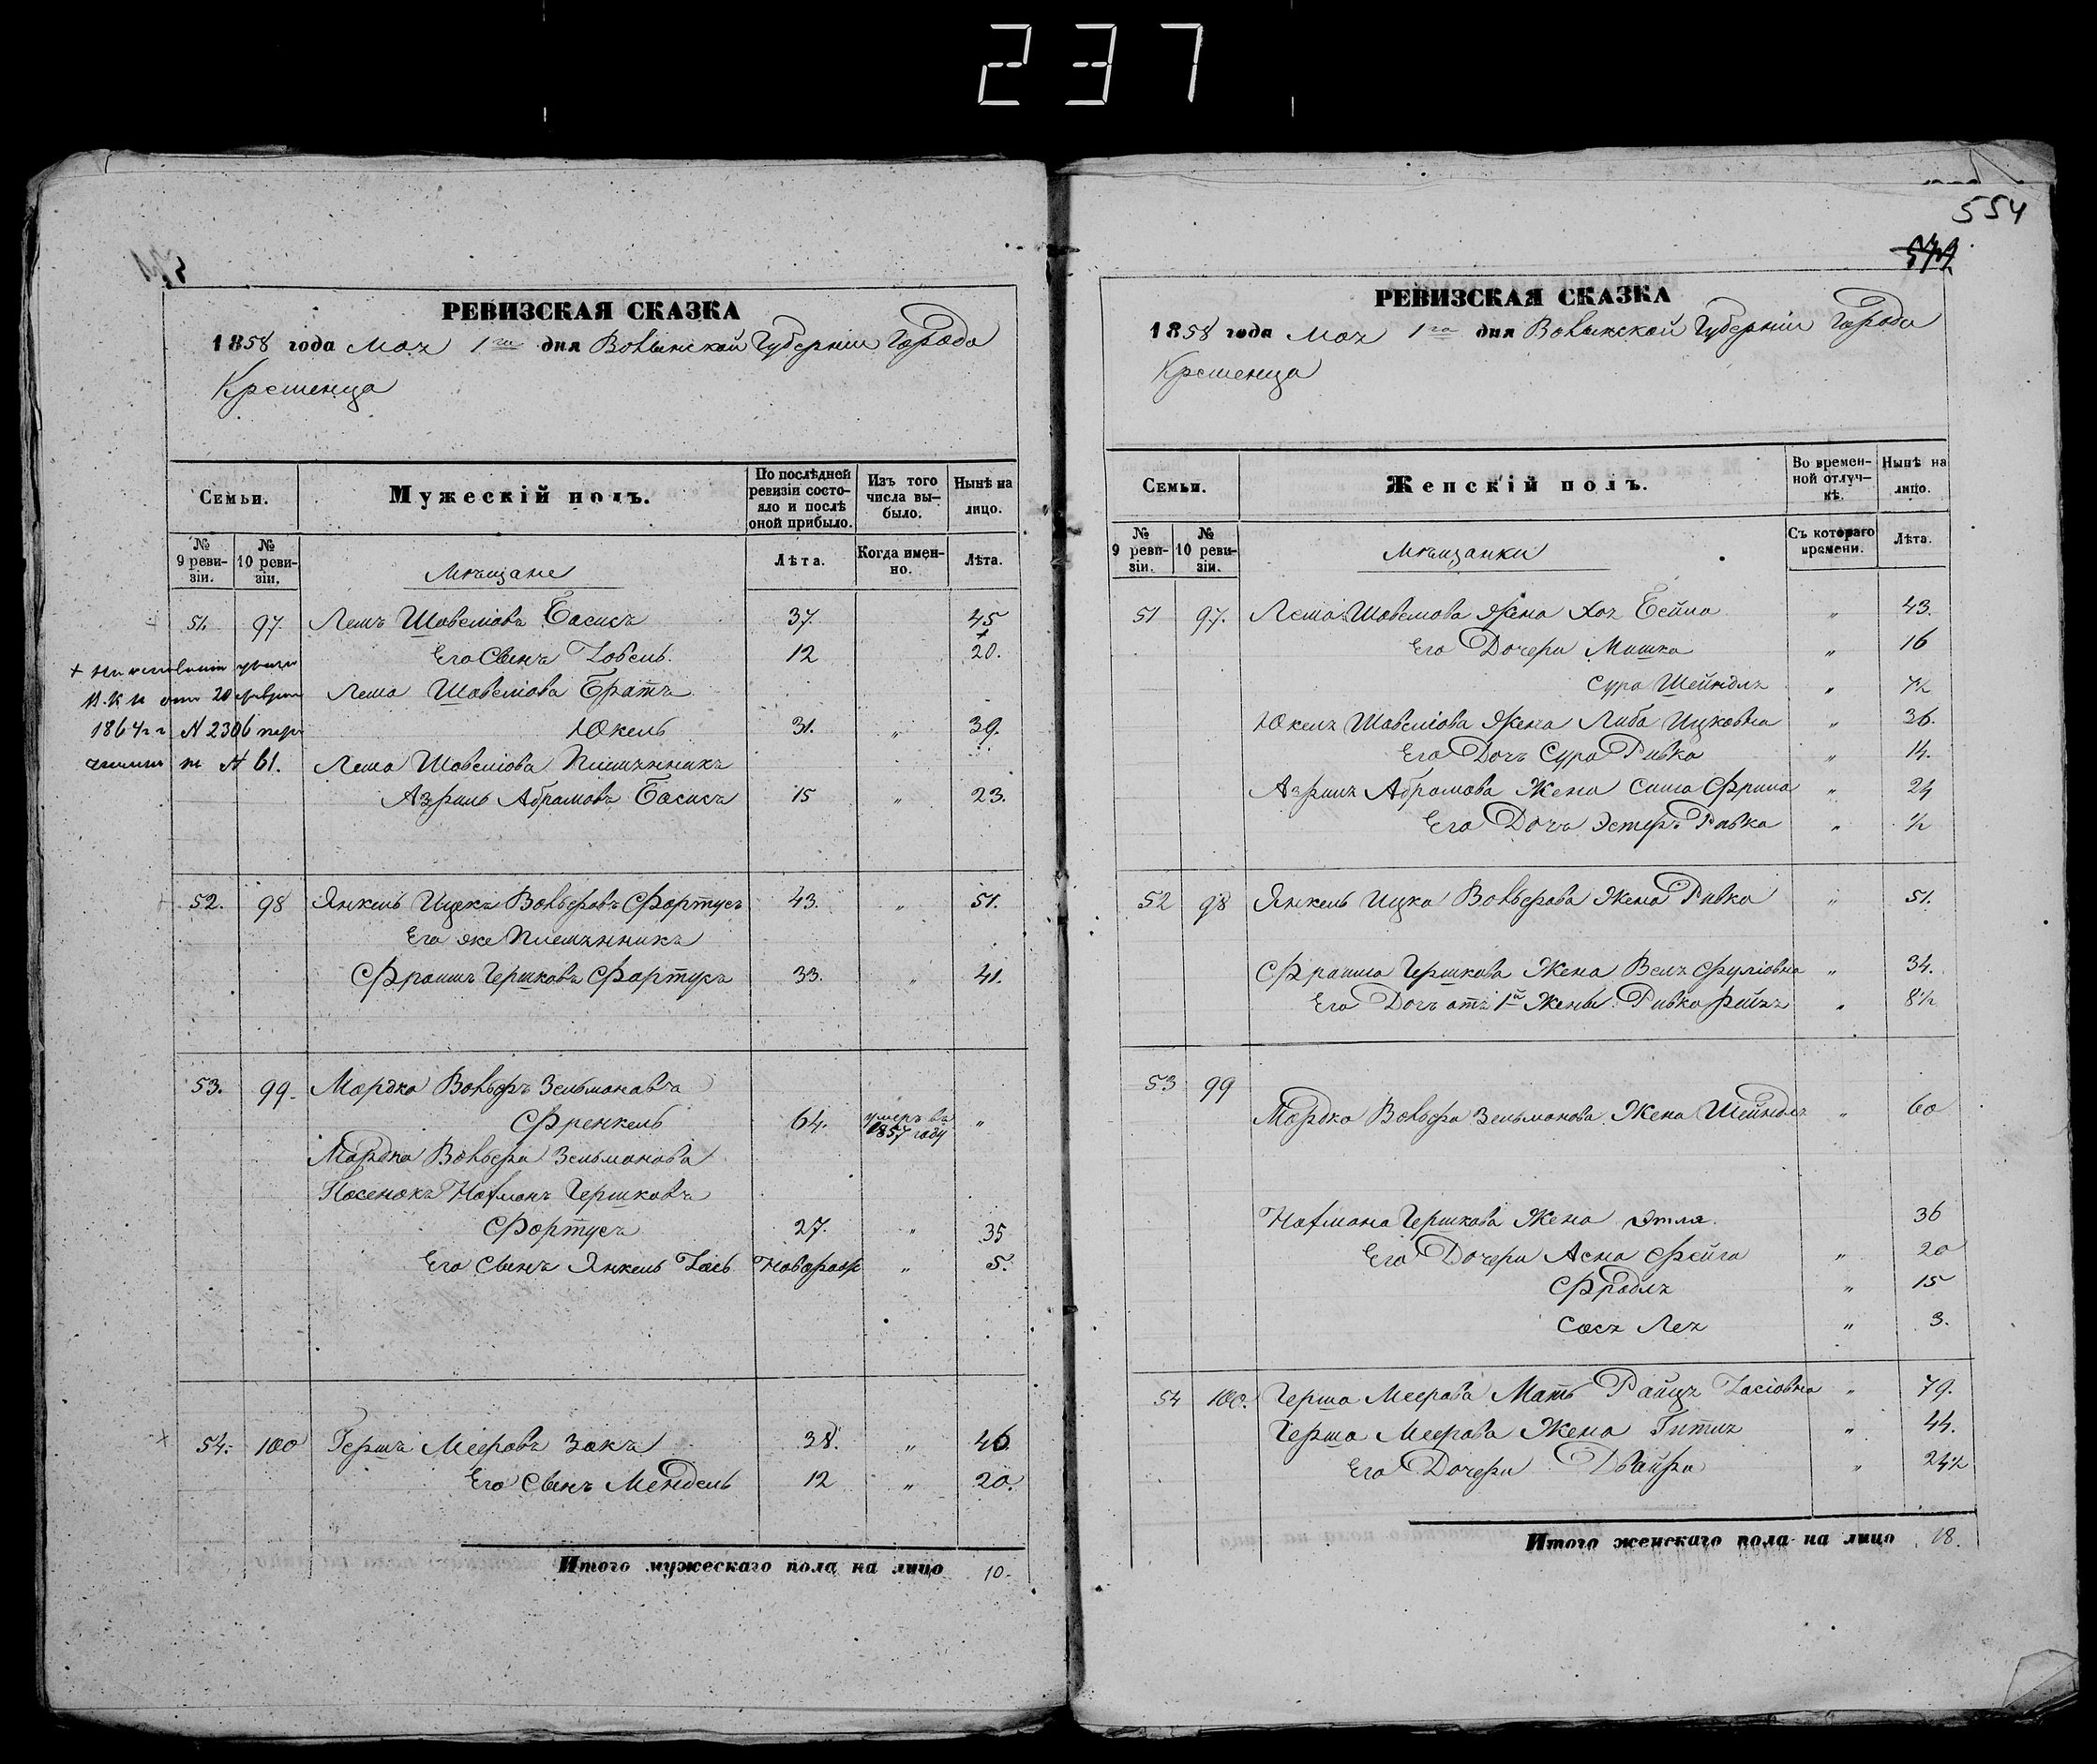 237
РЕВИЗСКАЯ СКАЗКА
1858 года Мая 1го дня Волынской Губерніи Города
Кременца
Семьи.
Мужескій полъ.
По послѣдней ревизіи состояло и послѣ оной прибыло.
Изъ того числа выбыло.
Нынѣ на лицо.
№ 9 ревизіи.
№ 10 ревизіи.
Мѣщане
Лѣта.
Когда именно.
Лѣта.
51. 97. Лейъ Шовеліовъ Басисъ 37. 45
Его Сынъ Іовель. 12 20.
Лейа Шовеліова Братъ
Юкель 31. „ 39.
Лейа Шовеліова Племянникъ
Азриль Абрамовъ Басисъ 15 „ 23.
+ На основаніи указа
В.К.П отъ 20 февраля
1864 г. N 2306
N 61.
52. 98 Янкель Ицекъ Вольфовъ Фортусъ 43. „ 51.
Его же Племянникъ
Фроимъ Гершковъ Фортусъ 33. „ 41.
53. 99. Мордко Вольфъ Зельмановъ
Френкель 64. умеръ въ 1857 году „
Мордка Вольфа Зельманова
Пасенокъ Нахманъ Гершковъ
Фортусъ 27. „ 35
Его Сынъ Янкель Іось Новорож „ 5.
54. 100 Гершъ Мееровъ Закъ 38. „ 46
Его Сынъ Мендель 12 „ 20.
Итого мужескаго пола на лицо 10.
554
РЕВИЗСКАЯ СКАЗКА
1858 года Мая 1го дня Волынской Губерніи Города
Кременца
Семьи.
Женскій полъ.
Во временной отлучкѣ.
Нынѣ на лицо.
№ 9 ревизіи.
№ 10 ревизіи.
Мѣщанки
Съ котораго времени.
Лѣта.
51 97. Лейа Шовелова Жена Хая Бейла „ 43.
Его Дочери Мишка „ 16
Сура Шейндля „
Юкеля Шовеліова Жена Либа Ицковна „ 36.
Его Дочь Сура Ривка „ 14.
Азриля Абрамова Жена Фрима „ 24
Его Дочь Эстеръ Ривка „ ½
52 98 Янкель Ицка Вольфова Жена Ривка „ 51.
Фроима Гершкова Жена „ 34.
Его Дочь отъ 1й Жены Ривка „ 8½
53 99
Мордка Вольфа Зельманова Жена Шейндля „ 60
Нахмана Гершкова Жена Этля 36
Его Дочери Асна Фейга „ 20
Фрадля „ 15
Сося Лея „ 3.
54 100. Герша Меерова Мать Райця Іосіовна „ 79.
Герша Меерова Жена Гитля „ 44.
Его Дочери Двойра „ 24½
Итого женскаго пола на лицо 18.